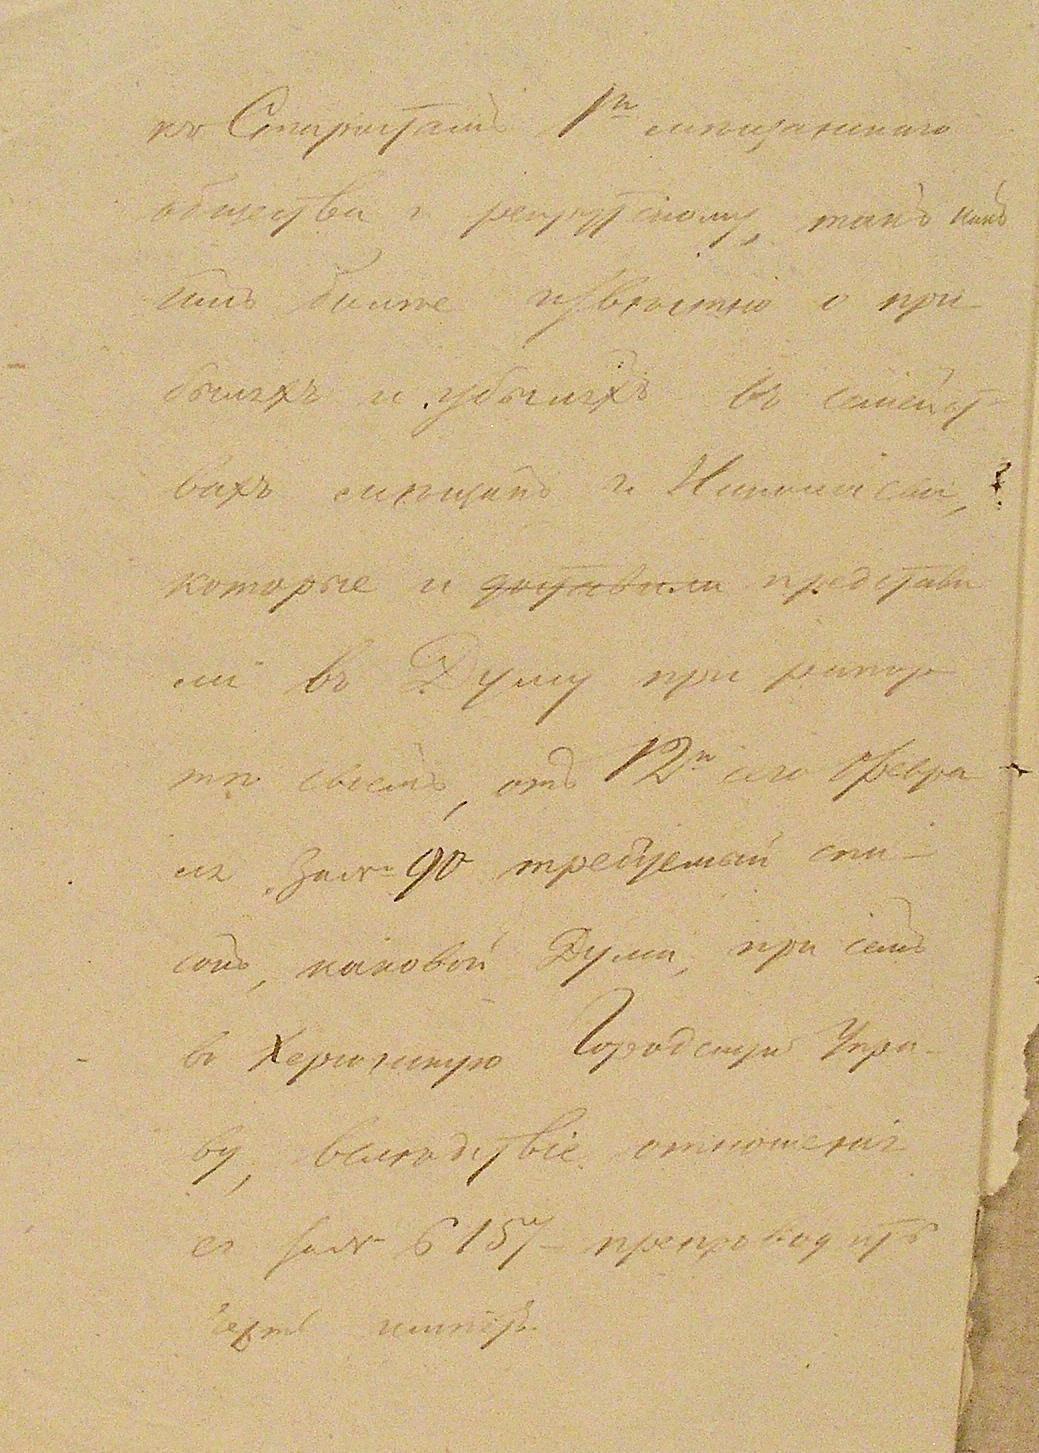 къ Старостамъ 1го мѣщанскаго
общества и рекрутскому, такъ какъ
имъ болѣе извѣстно о при
былыхъ и убылыхъ въ семейст
вахъ мѣщанъ г. Николаева,
которые и доставили представи
ли въ Думу при рапор
тѣ своемъ, отъ 12го сего Февра
ля за № 90 требуемый спи-
сокъ, каковой Дума, при семъ
въ Херсонскую Городскую Упра-
ву, вслѣдствіе отношенія
ея за № 6157 препроводить
честь имѣетъ.